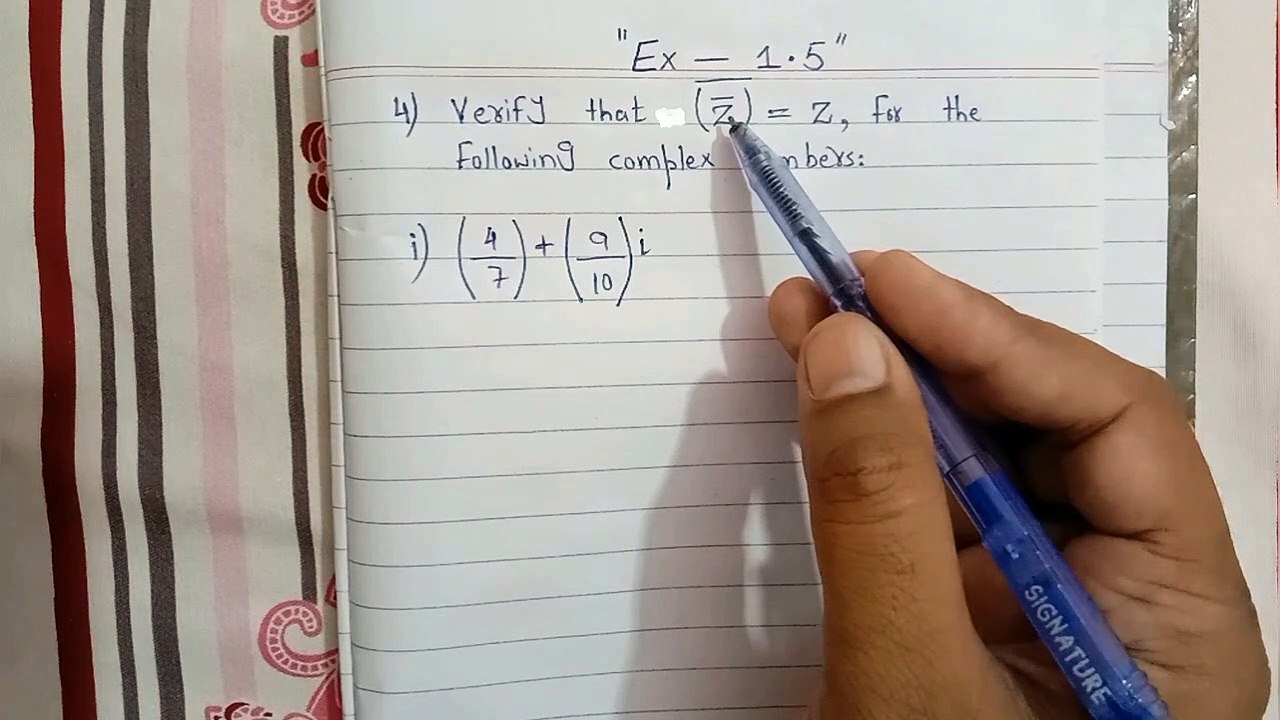 "Ex — 1.5"
4) Verify that $\overline{(\overline{z})}$ = z, for the
Following complex mbers:
i) $\left(\frac{4}{7}\right)+\left(\frac{9}{10}\right)i$
SIGNATURE